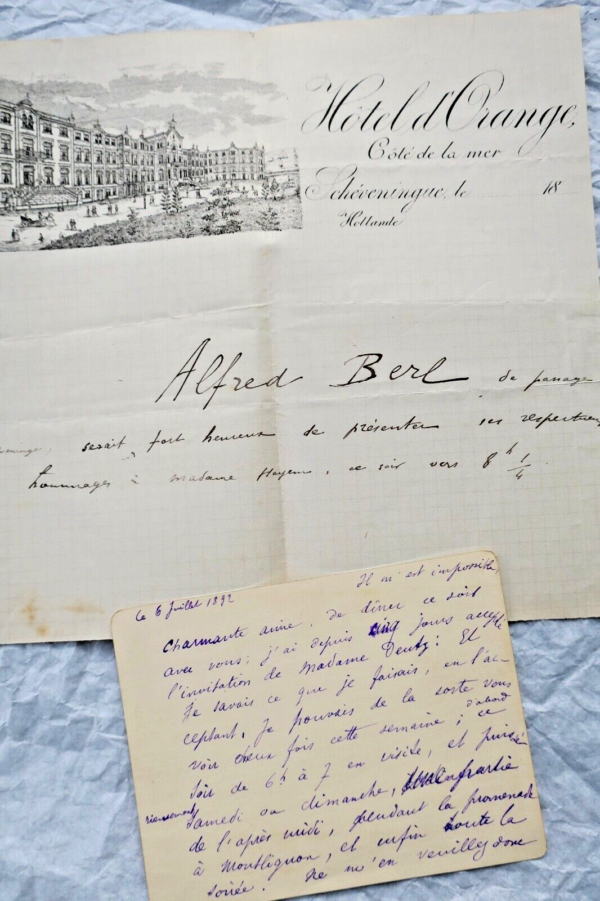 Hôtel d'Orange,
Côté de la mer
Schéveningue, le 18
Hollande
Alfred Berl de passage
serait fort heureux de présenter ses respectueux
hommages à Madame Hayem, ce soir vers 8 h 1/4
le 6 Juillet 1892
Il m'est impossible,
Charmante amie, de dîner ce soir
avec vous: j'ai depuis cinq jours accepté
l'invitation de Madame Deutz: Et
Je savais ce que je faisais, en l'ac-
ceptant. Je pouvais de la sorte vous
voir deux fois cette semaine; ce
d'abord
soir de 6h à 7 en visite, et puis
Samedi ou dimanche, partie
de l'après midi, pendant la promenade
à Montlignon, et enfin toute la
soirée. Ne m'en veuillez donc